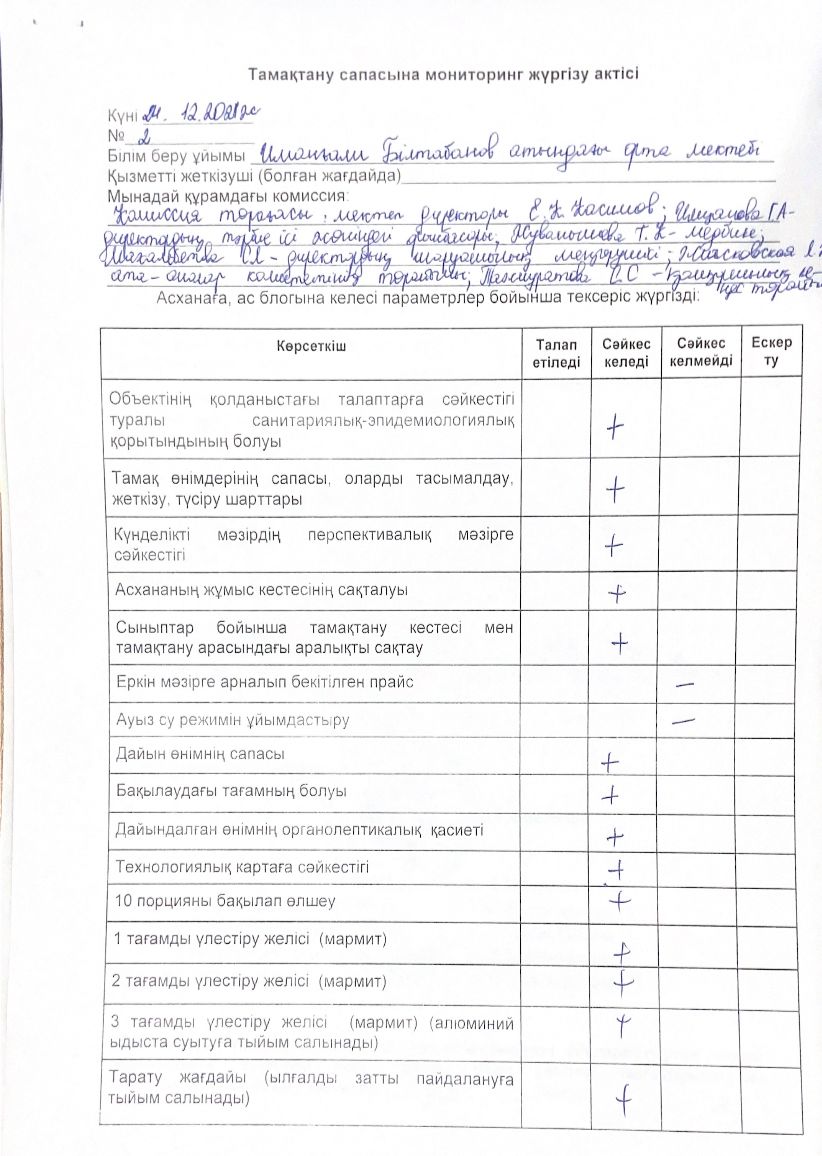 Тамақтану сапасына мониторинг жүргізу актісі
Күні 21. 12.2021ж
№ 2
Білім беру ұйымы Иманғали Білтабанов атындағы орта мектебі
Қызметті жеткізуші (болған жағдайда)
Мынадай құрамдағы комиссия:
Комиссия торағасы: мектеп директоры Е. К. Касимов;
директордың тәрбие ісі жөніндегі орынбасары; Т. К - медбике;
- директордың шаруашылық меңгерушісі;
ата-аналар комитетінің
Асханаға, ас блогына келесі параметрлер бойынша тексеріс жүргізді:
Көрсеткіш Талап етіледі Сәйкес келеді Сәйкес келмейді Ескер ту
Объектінің қолданыстағы талаптарға сәйкестігі
туралы санитариялық-эпидемиологиялық
қорытындының болуы +
Тамақ өнімдерінің сапасы, оларды тасымалдау,
жеткізу, түсіру шарттары +
Күнделікті мәзірдің перспективалық мәзірге
сәйкестігі +
Асхананың жұмыс кестесінің сақталуы +
Сыныптар бойынша тамақтану кестесі мен
тамақтану арасындағы аралықты сақтау +
Еркін мәзірге арналып бекітілген прайс –
Ауыз су режимін ұйымдастыру –
Дайын өнімнің сапасы +
Бақылаудағы тағамның болуы +
Дайындалған өнімнің органолептикалық қасиеті +
Технологиялық картаға сәйкестігі +
10 порцияны бақылап өлшеу +
1 тағамды үлестіру желісі (мармит) +
2 тағамды үлестіру желісі (мармит) +
3 тағамды үлестіру желісі (мармит) (алюминий
ыдыста суытуға тыйым салынады) +
Тарату жағдайы (ылғалды затты пайдалануға
тыйым салынады) +